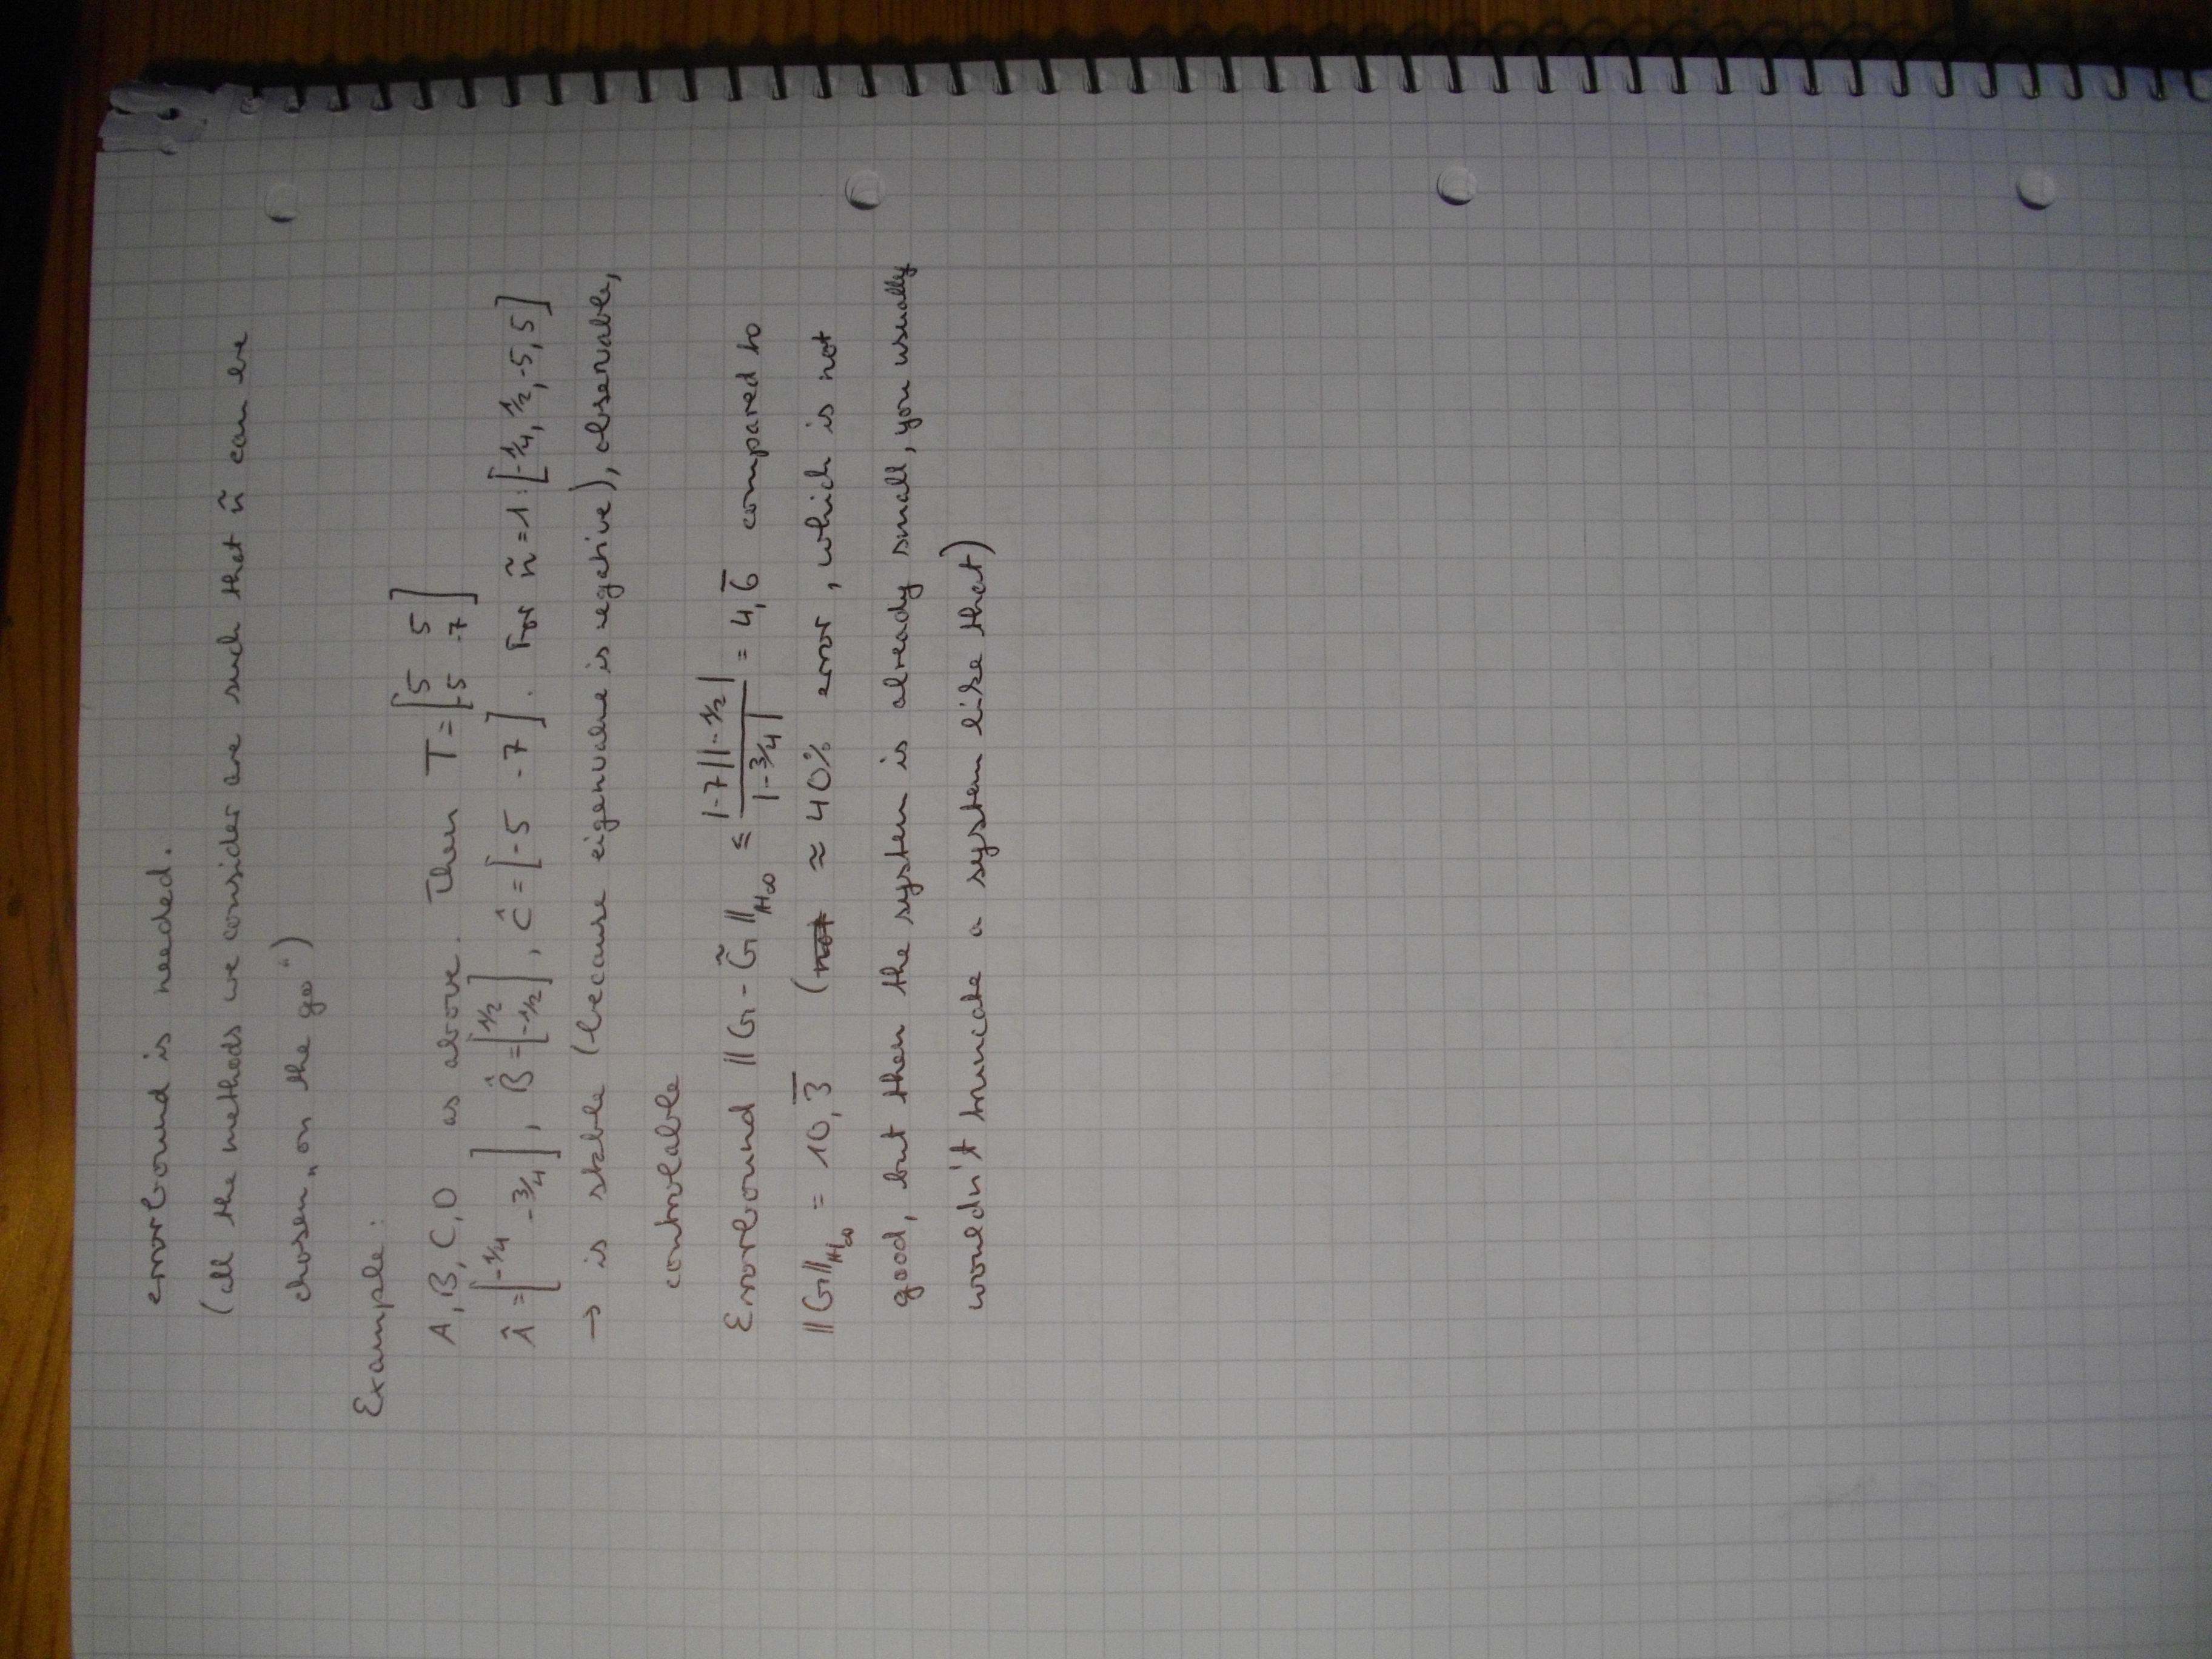 errorbound is needed.
(all the methods we consider are such that ñ can be
chosen „on the go")
Example:
A, B, C, D as above. Then T = [5 5; -5 -7]
Â = [-1/4 -3/4], B̂ = [1/2; -1/2], Ĉ = [-5 -7]. For ñ = 1: [-1/4, 1/2, -5, 5]
→ is stable (because eigenvalue is negative), observable,
controlable
Errorbound ||G - G̃||_H∞ ≤ |-7||-1/2| / |-3/4| = 4,6̅ compared to
||G||_H∞ = 10,3̅ (not ≈ 40% error, which is not
good, but then the system is already small, you usually
wouldn't truncate a system like that)